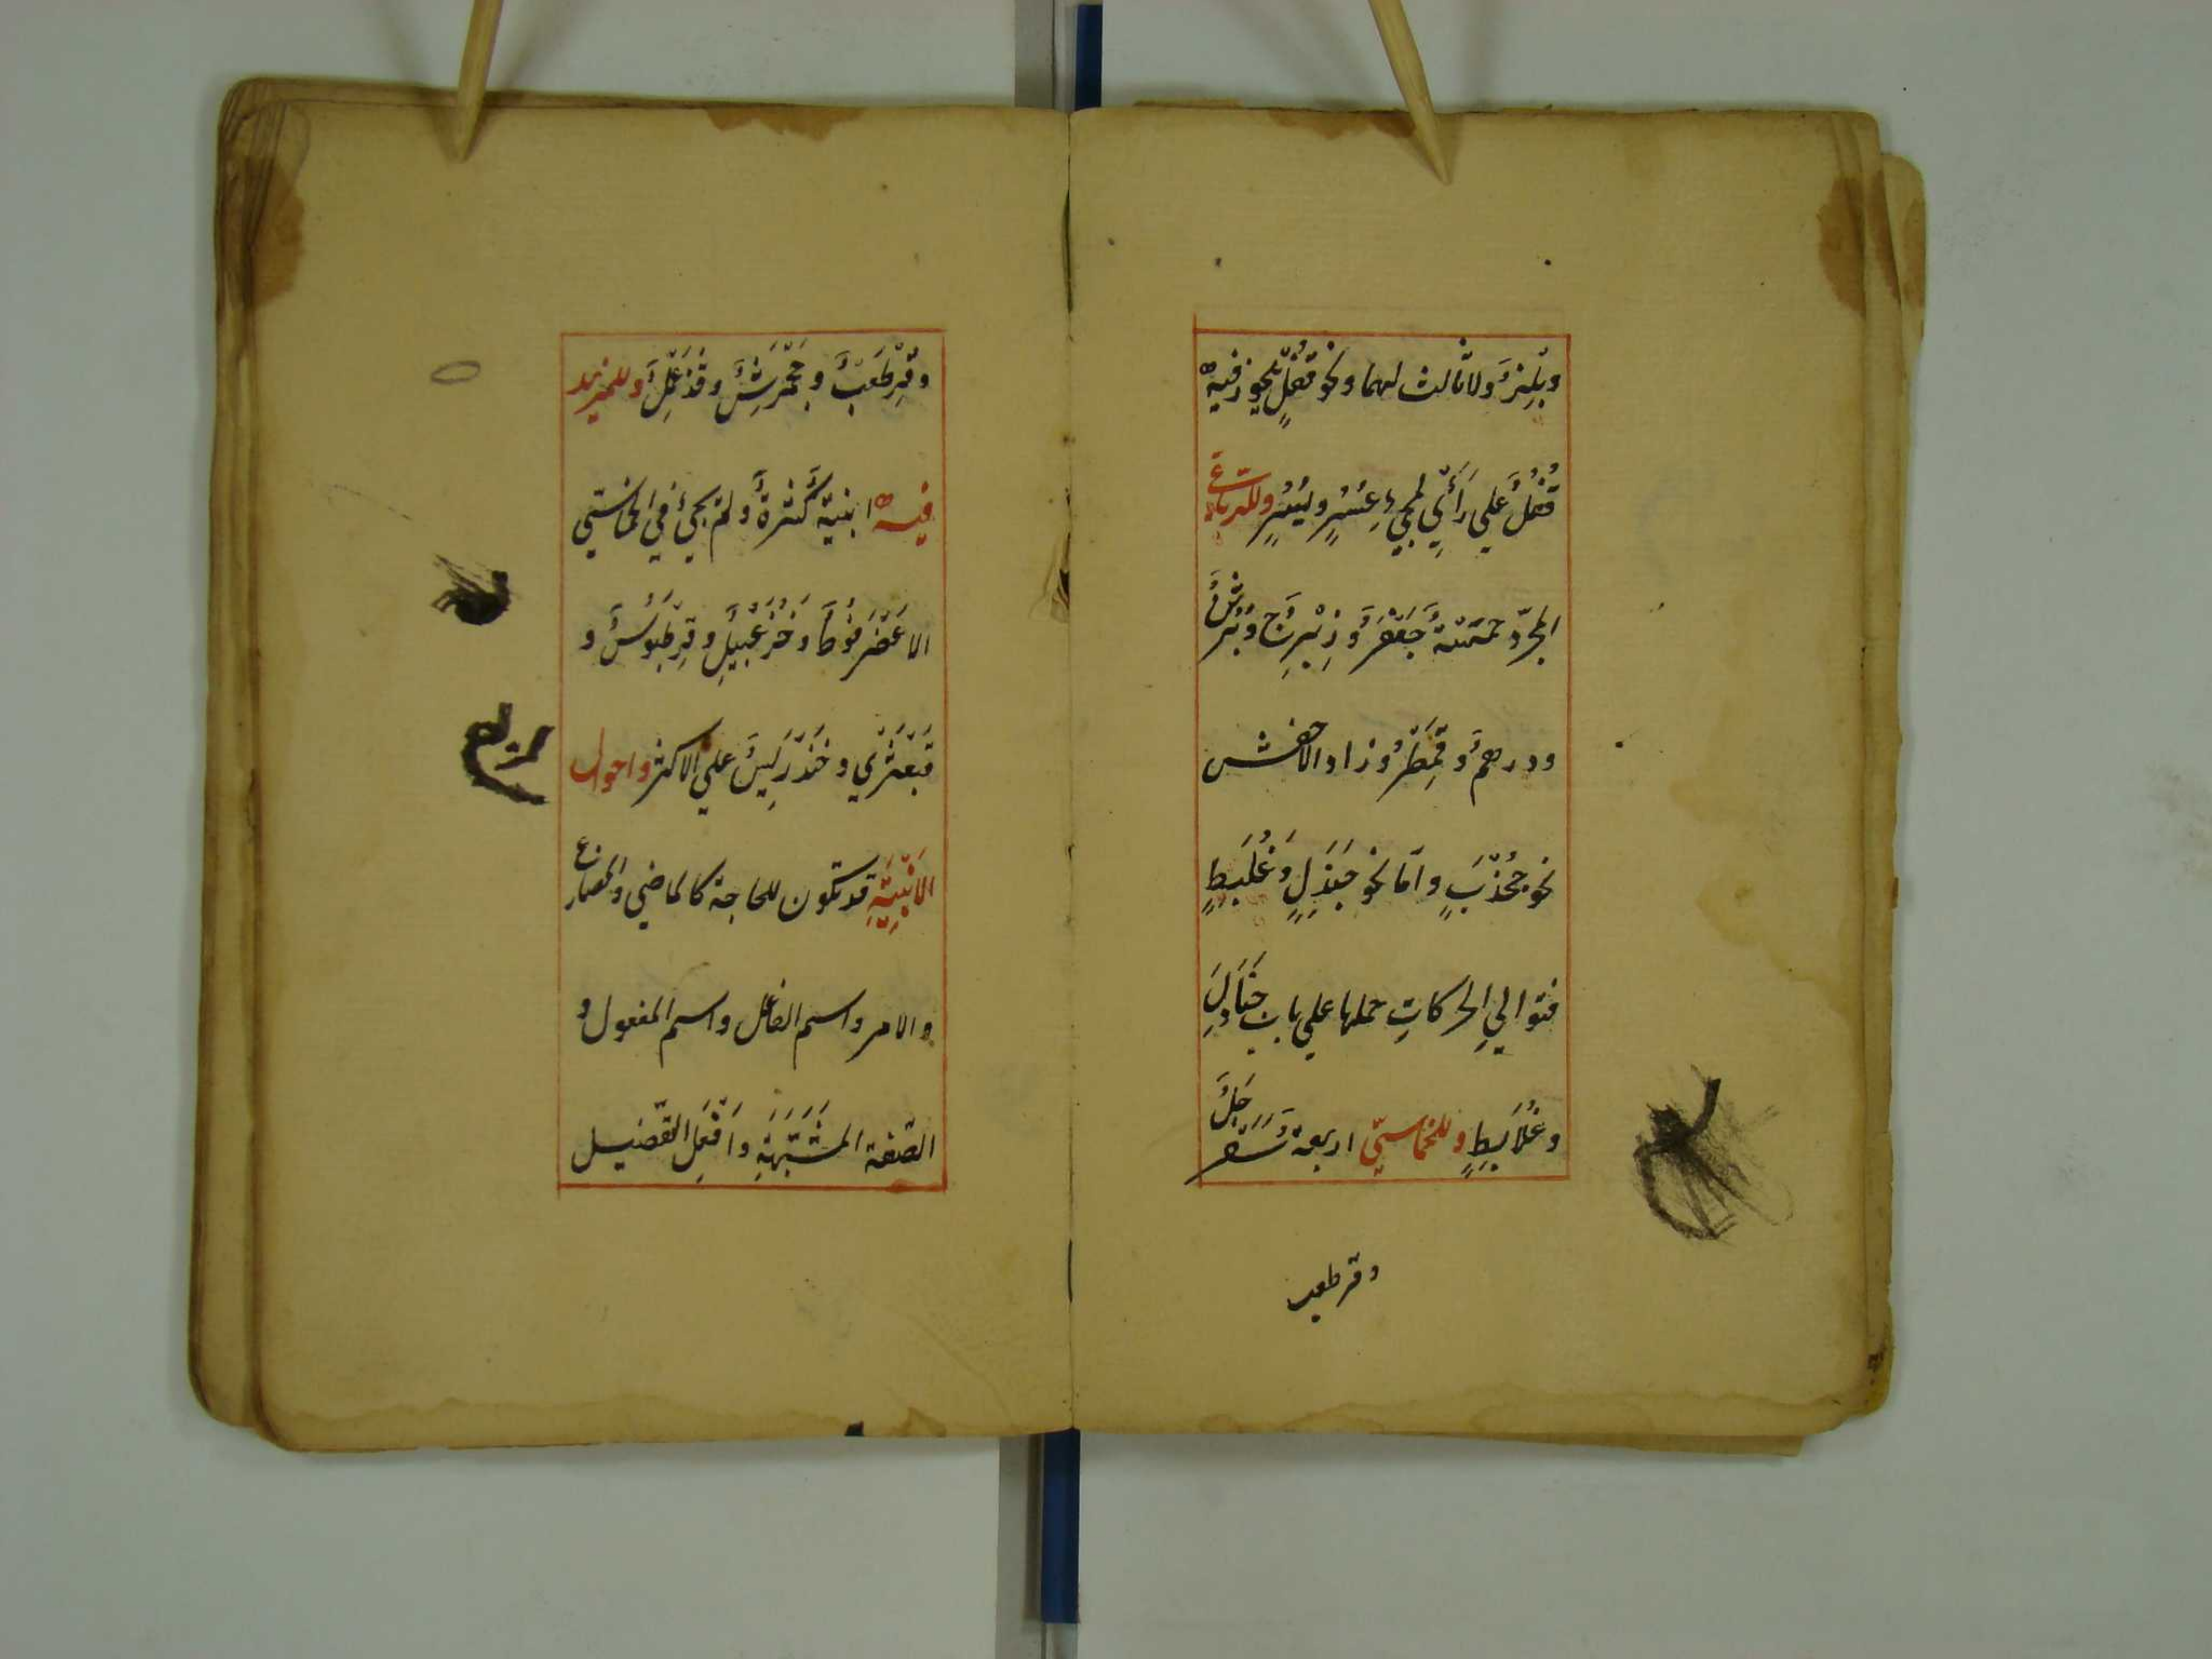 وبلز ولا ثالث لهما ونحو قفل يجوز فيه
قفل علي رأي لمجيء عسر ويسر وللرباعي
المجرد خمسة جعفر وزبرج وبرثن
ودرهم وقمطر وزاد الاخفش
نحو جخدب واما نحو جندل وعلبط
فتوالي الحركات حملها علي باب جنادل
وعلابط وللخماسي اربعة سفرجل
وقرطعب
وقرطعب وجحمرش وقذعمل وللمزيد
فيه ابنية كثيرة ولم يجئ في الخماسي
الا عضرفوط وخزعبيل وقرطبوس و
قبعثري وخندريس علي الاكثر واحوال
الابنية قد تكون للحاجة كالماضي والمضارع
والامر واسم الفاعل واسم المفعول و
الصفة المشبهة وافعل التفضيل